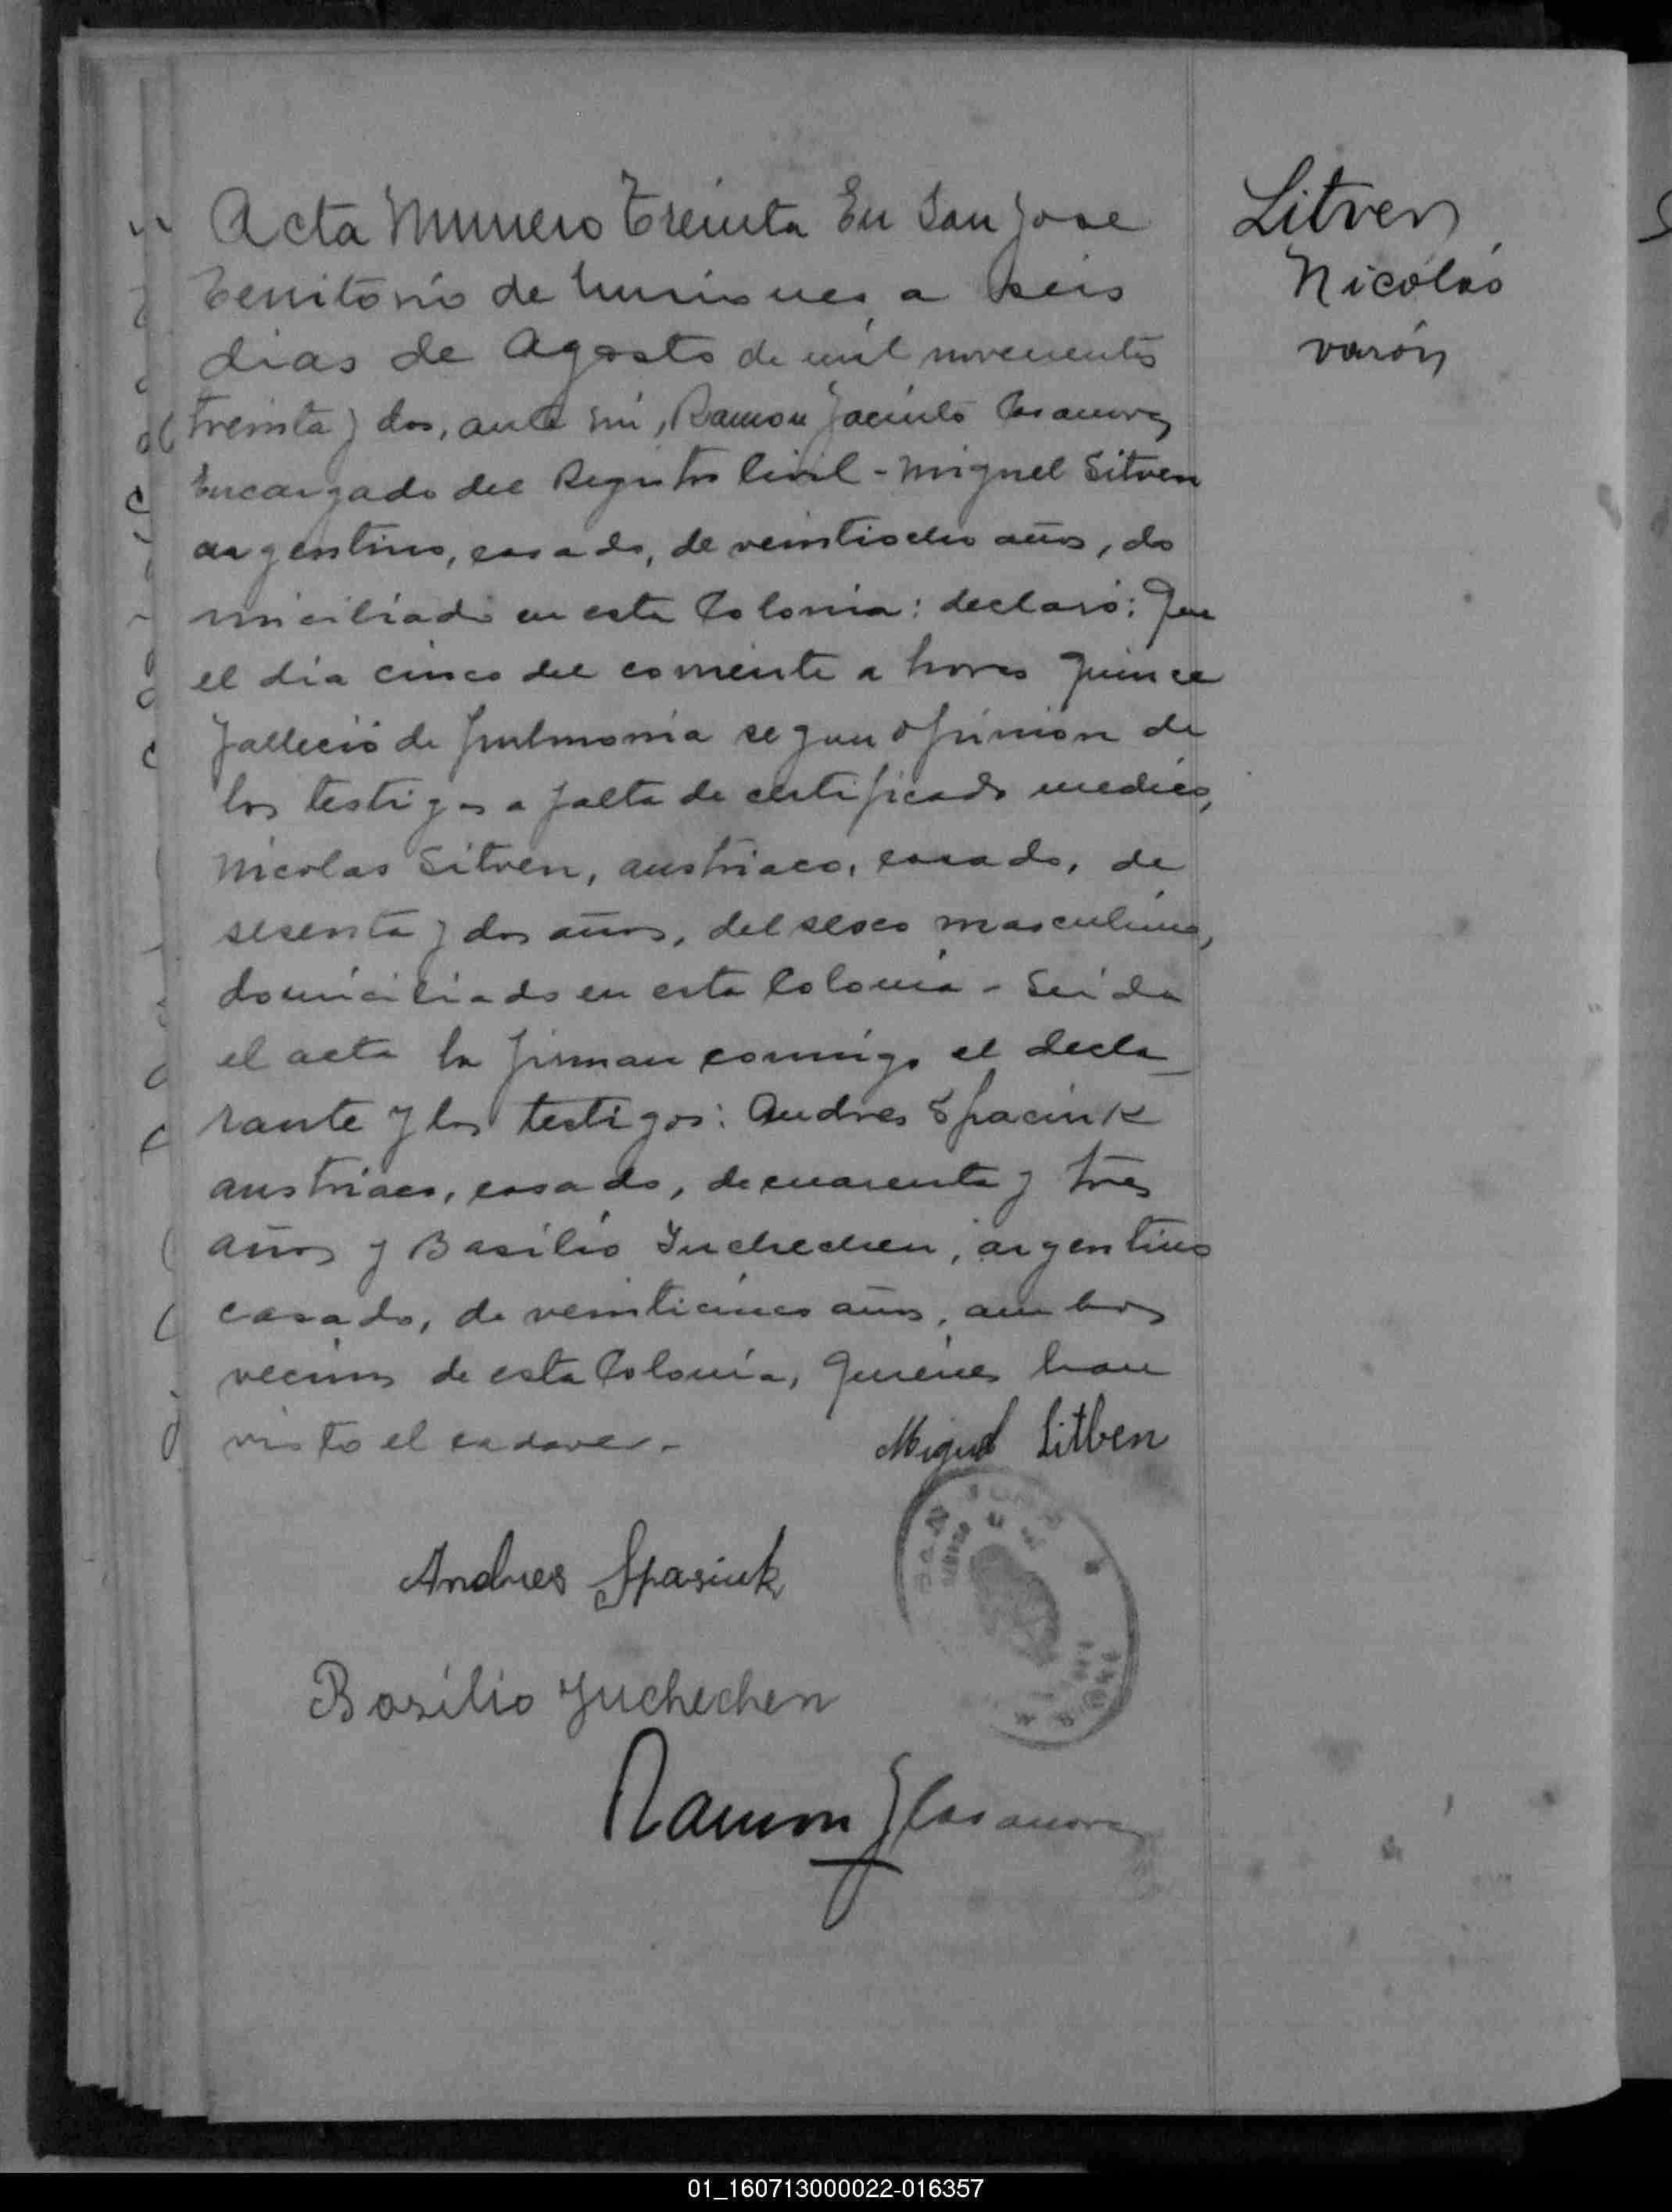 Acta Numero Treinta En San Jose
Territorio de Misiones, a seis
dias de Agosto de mil novecientos
treinta y dos, ante mi, Ramon Jacinto Casanova
Encargado del Registro Civil - Miguel Litven
argentino, casado, de veintiocho años, do
miciliado en esta Colonia: declaró: Que
el dia cinco del corriente a horas quince
falleció de pulmonia segun opinion de
los testigos a falta de certificado medico,
Nicolas Litven, austriaco, casado, de
sesenta y dos años, del sexo masculino,
domiciliado en esta Colonia - Leida
el acta la firman conmigo el decla_
rante y los testigos: Andres Spaciuk
austriaco, casado, de cuarenta y tres
años y Basilio Juchechen, argentino
casado, de veinticinco años, ambos
vecinos de esta Colonia, quienes han
visto el cadaver.-
Miguel Litben
Andres Spasiuk
Basilio Juchechen
Ramon J Casanova
Litven
Nicolás
varón
01_160713000022-016357